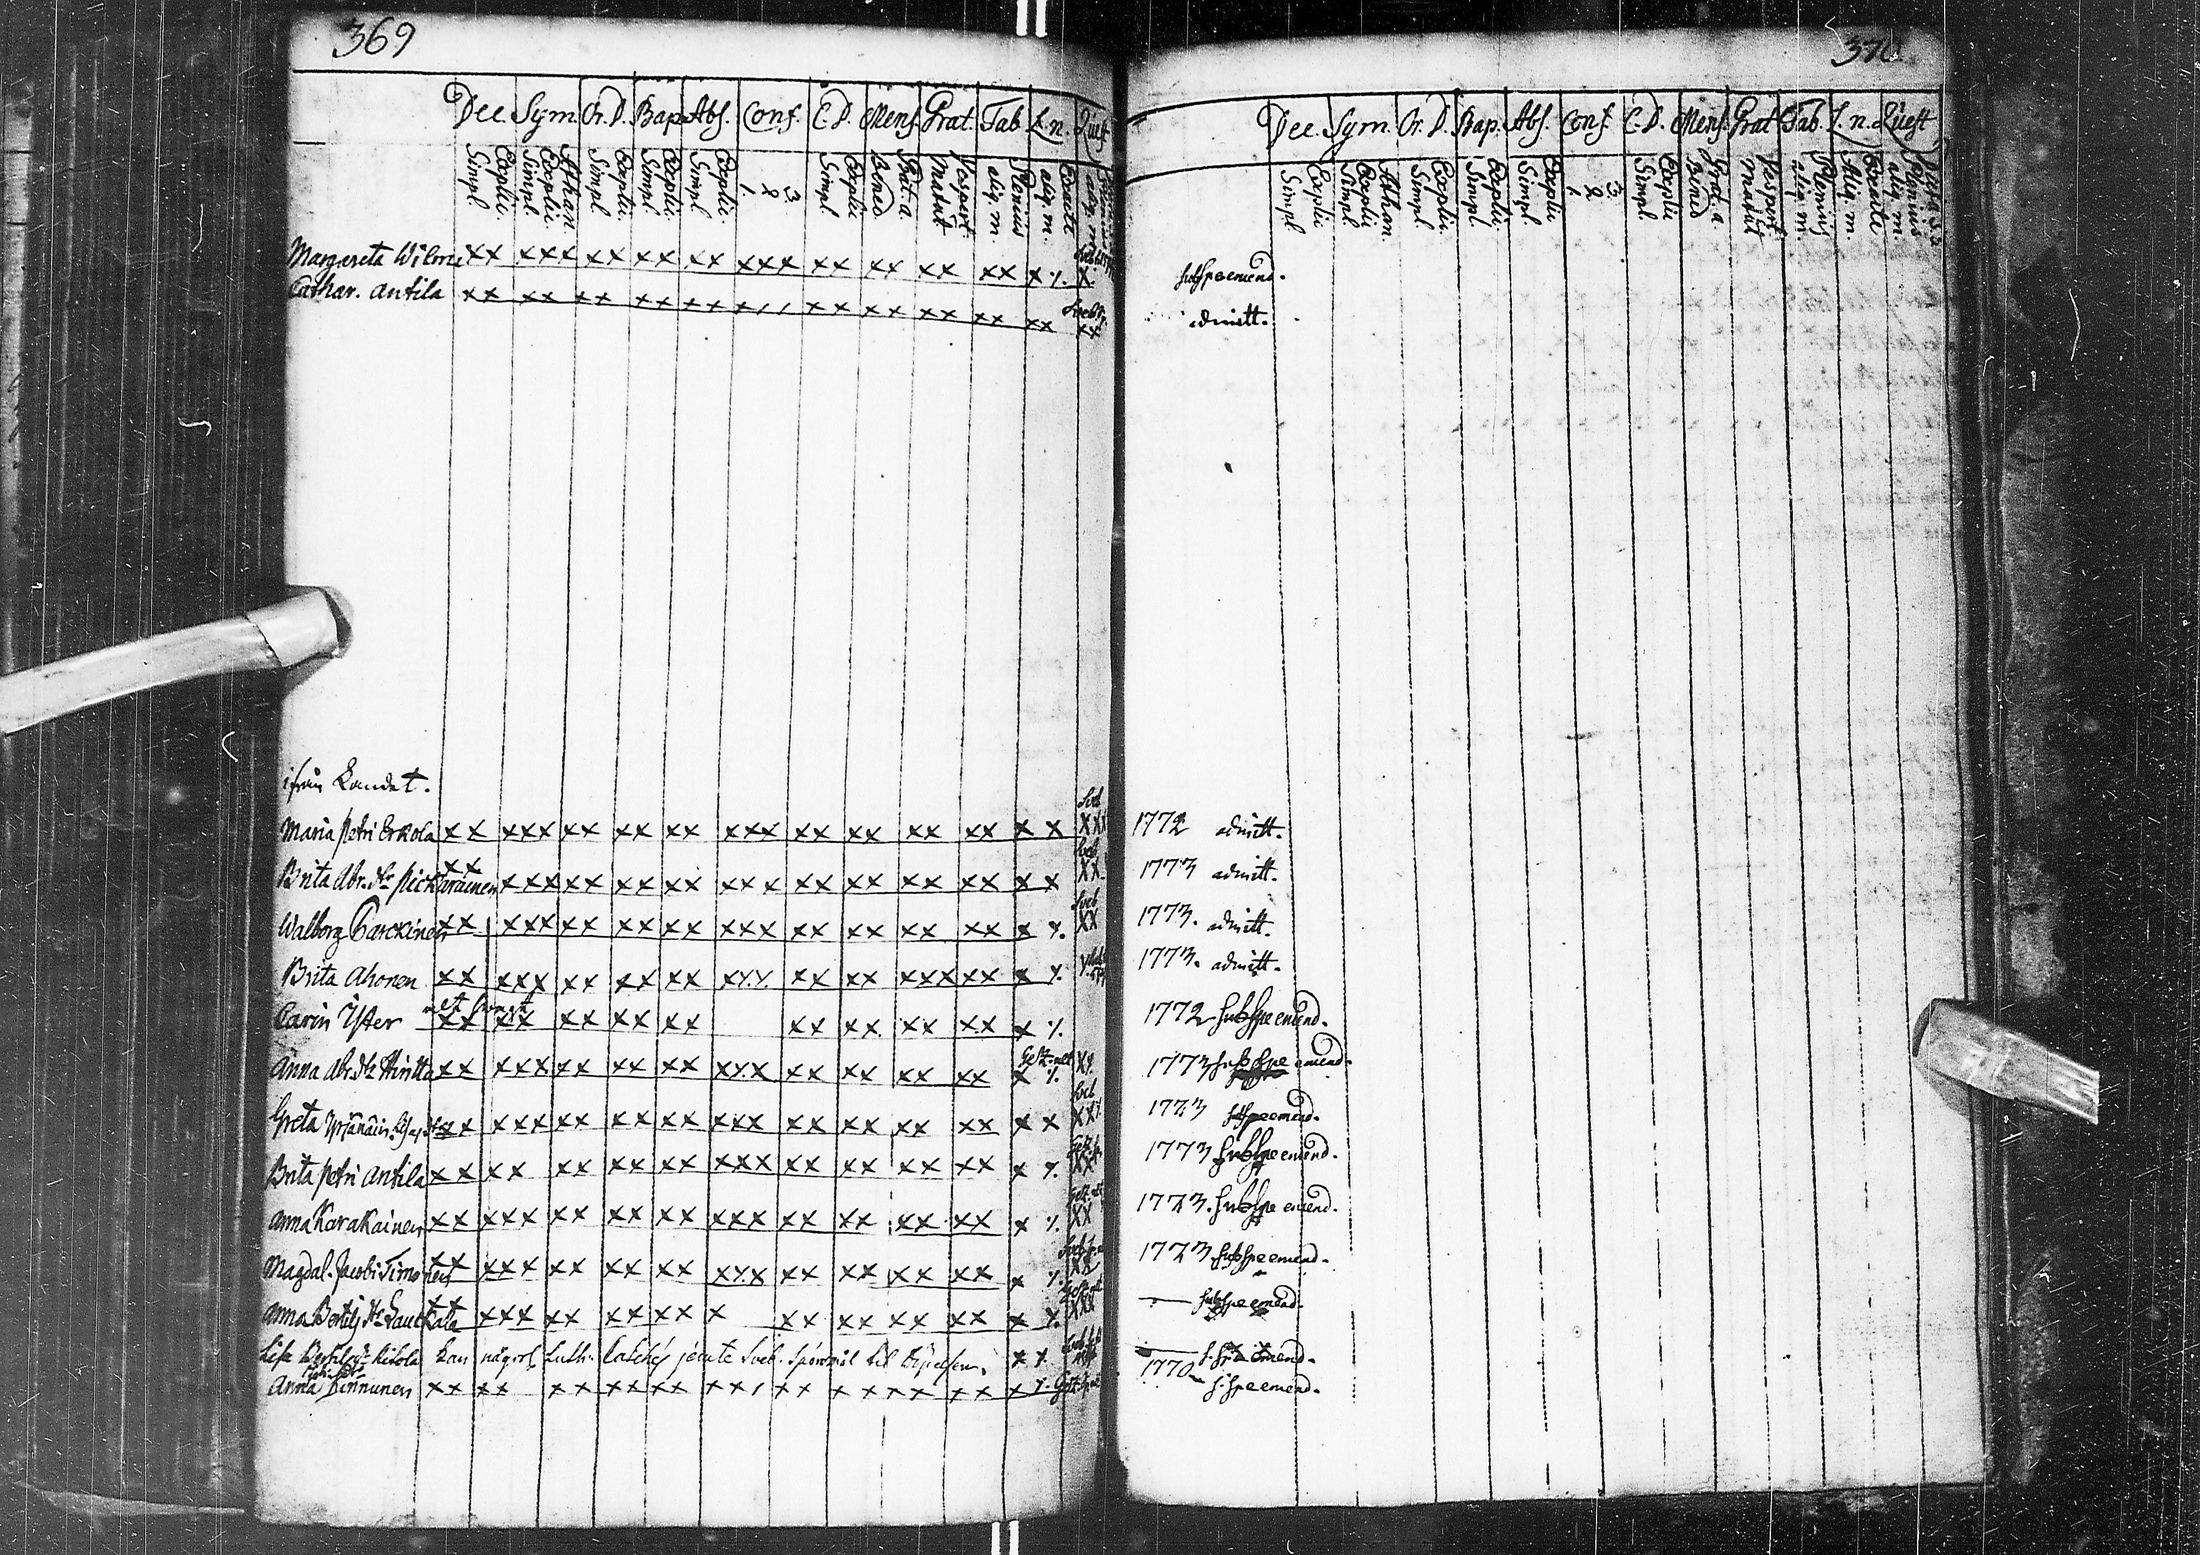 369
Dec. Sym. Or. D. Bap. Abs. Conf. C. D. Mens. Grat. Tab. L. n. Quest
Simpl. Explic. Simpl. Explic. Athan Simpl. Explic. Simpl. Explic. Simpl. Explic. 1. 2 3. Simpl. Explic. Bened Grat. a. Matut Vespert. aliq. m. Plenius aliq. m. Exacte aliq. m.
Margareta Wilme xx xxx xx xx xx xxx xx xx xx xx x ⁒ x
Cathar. Antila xx xx xx xx xx x// xx xx xx xx xx xx
ifrån Landet.
Maria Petri Erkola xx xxx xx xx xx xxx xx xx xx xx x x Sveb xxx
Brita Abr. dr Pickarainen xx xxx xx xx xx xxx xx xx xx xx x x Sveb xx
Walborg Carckinen xx xxx xx xx xx xxx xx xx xx xx x ⁒ Sveb xx
Brita Ahonen xx xxx xx xx xx xyy xx xx xxx xx x ⁒
Carin Ijster xx xx xx xx xx xx xx xx xx x ⁒
Anna Abr. dr Hintta xx xxx xx xx xx xxx xx xx xx xx x ⁒ xx
Greta xx xxx xx xx xx xxx xx xx xx xx x x Sveb xx
Brita Petri Antila xx xx xx xx xx xxx xx xx xx xx x ⁒ xx
Anna Karakainen xx xxx xx xx xx xxx xx xx xx xx x ⁒ xx
Magdal. Jacobi Timonen xx xxx xx xx xx xxx xx xx xx xx x ⁒ xx
Anna Bertils dr xx xxx xx xx xx x xx xx xx xx x ⁒ xxx
Lisa kan någorl. Luth. Sveb. spörsmål til x x
Anna Kinnunen xx xx xx xx xx/ xx xx xx xx x
370
Dec. Sym. Or. D. Bap. Abs. Conf. C. D. Mens. Grat. Tab. L. n. Quest
Simpl Explic. Simpl. Explic. Athan. Simpl. Explic. Simpl. Explic. Simpl. Explic 1 2 3. Simpl. Explic Bened Grat. a Matut Vespert. aliq. m. Plenius Aliq. m. Exacte aliq. m. Plenius
subspe emend.
admitt.
1772 admitt.
1773 admitt.
1773. admitt.
1773. admitt.
1772 subspe emend.
1773 subspe emend.
1773 subspe emend.
1773 subspe emend.
1773. subspe emend.
1773 subspe emend.
— subspe emend.
— s. spe emend.
1770 s. spe emend.